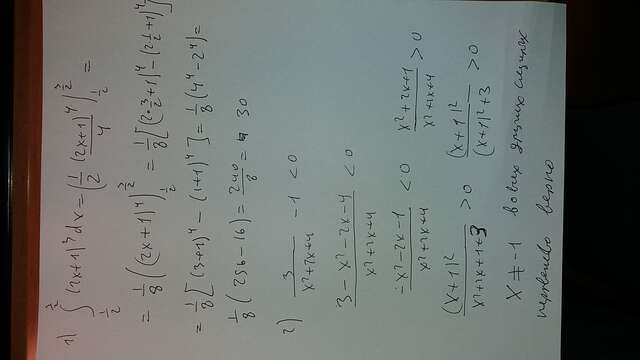 1) ∫_{1/2}^{3/2} (2x+1)³dx = (1/2 (2x+1)⁴/4)|_{1/2}^{3/2} =
= 1/8 ((2x+1)⁴)|_{1/2}^{3/2} = 1/8 [(2·3/2+1)⁴-(2·1/2+1)⁴]
= 1/8 [(3+1)⁴ - (1+1)⁴] = 1/8 (4⁴-2⁴) =
1/8 (256-16) = 240/8 = 30
2) 3/(x²+2x+4) - 1 < 0
(3-x²-2x-4)/(x²+2x+4) < 0
(-x²-2x-1)/(x²+2x+4) < 0 (x²+2x+1)/(x²+2x+4) > 0
(x+1)²/(x²+2x+1+3) > 0 (x+1)²/((x+1)²+3) > 0
x ≠ -1 во всех других случаях
неравенство верно